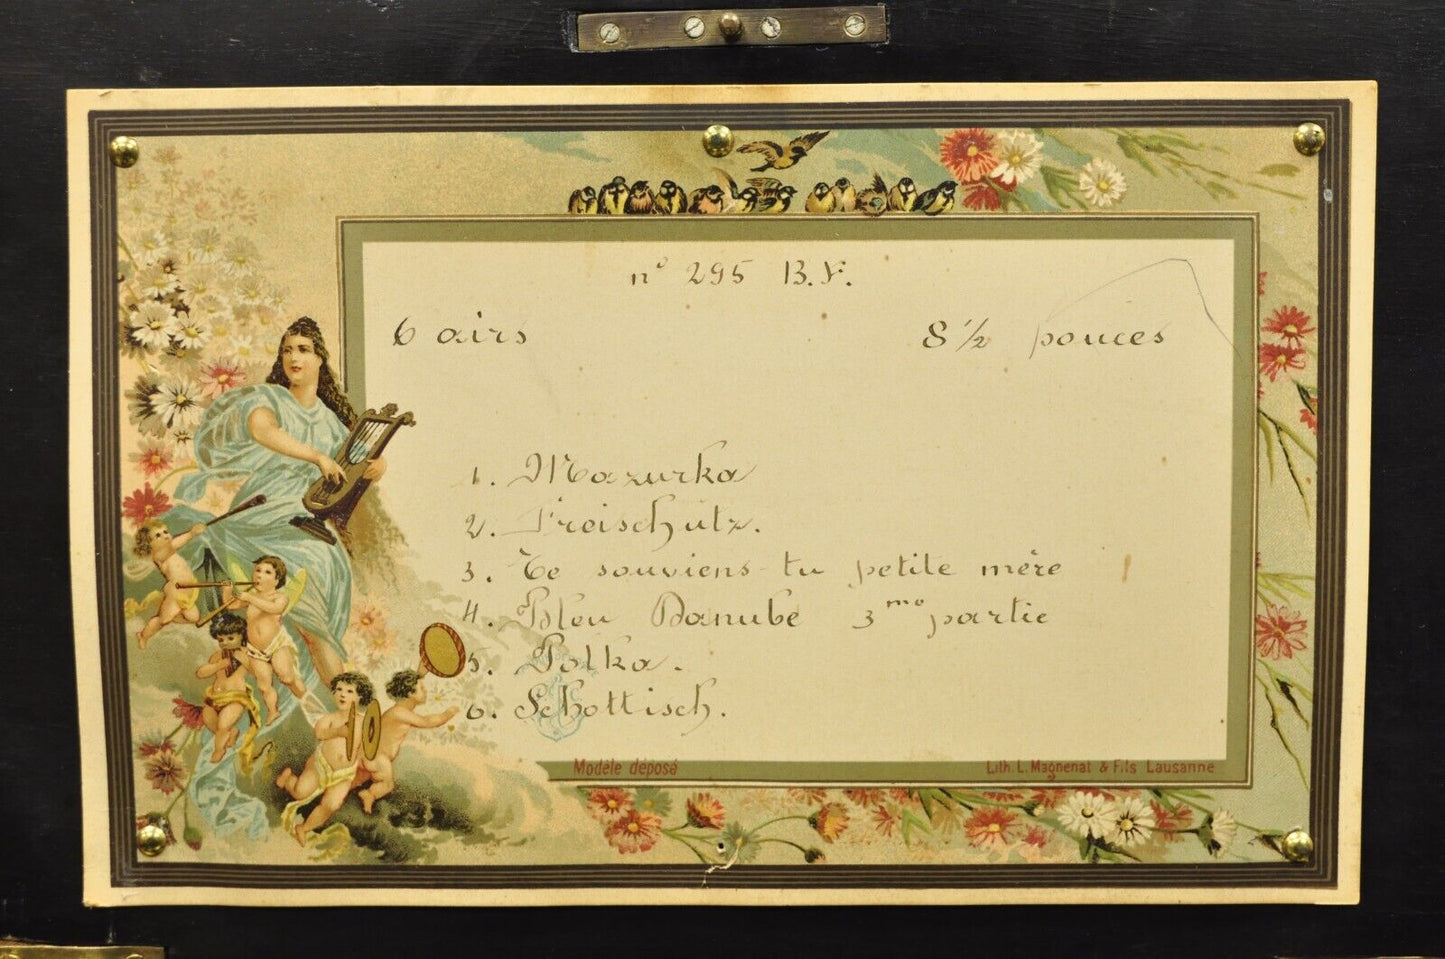 n° 295 B.F.
6 airs
8 ½ pouces
1. Mazurka
2. Freischutz.
3. Te souviens-tu petite mère
4. Bleu Danube 3me partie
5. Polka.
6. Schottisch.
Modèle déposé
Lith. L. Magnenat & Fils Lausanne